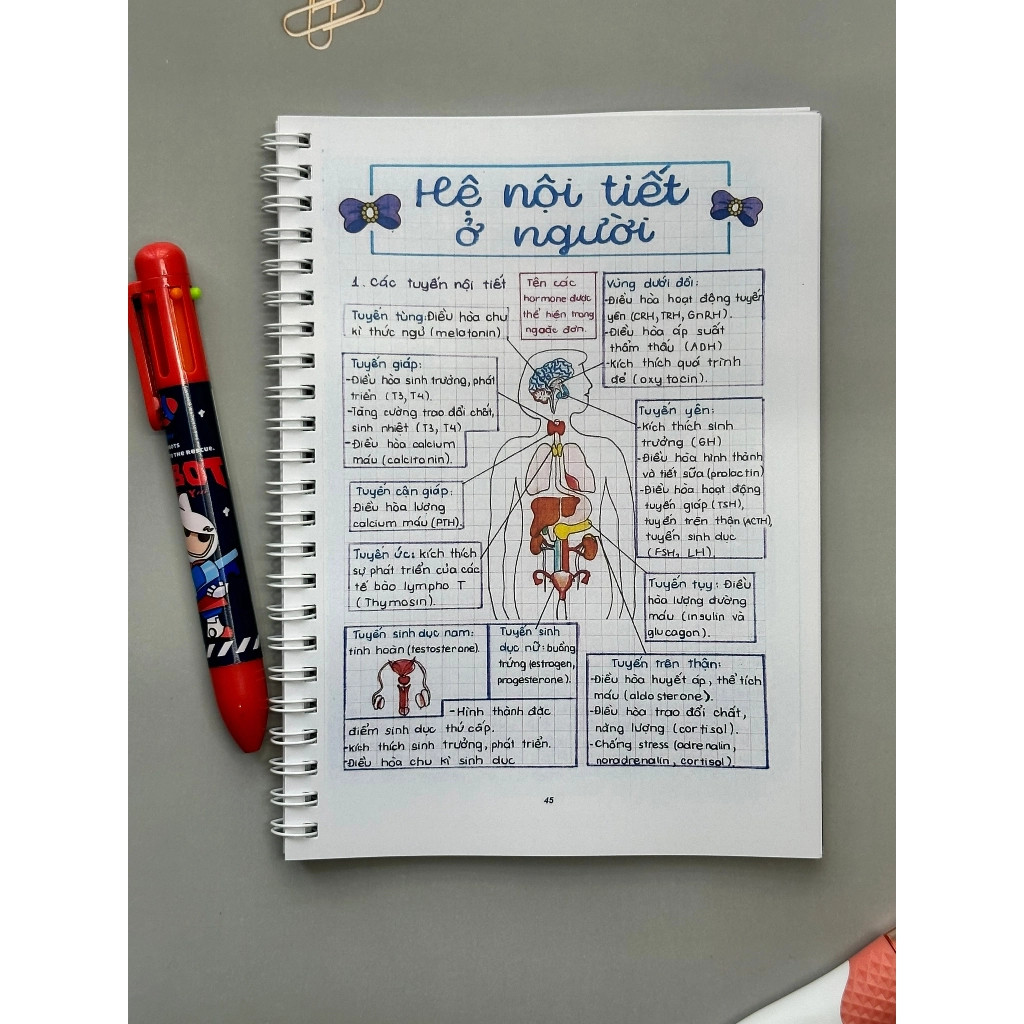 Hệ nội tiết
ở người
1. Các tuyến nội tiết
Tên các
hormone được
thể hiện trong
ngoặc đơn.
Vùng dưới đồi:
-Điều hòa hoạt động tuyến
yên (CRH, TRH, GnRH).
-Điều hòa áp suất
thẩm thấu (ADH)
-Kích thích quá trình
đẻ (oxytocin).
Tuyến tùng: Điều hòa chu
kì thức ngủ (melatonin)
Tuyến giáp:
-Điều hòa sinh trưởng, phát
triển (T3, T4).
-Tăng cường trao đổi chất,
sinh nhiệt (T3, T4)
-Điều hòa calcium
máu (calcitonin).
Tuyến yên:
-Kích thích sinh
trưởng (GH)
-Điều hòa hình thành
và tiết sữa (prolactin)
-Điều hòa hoạt động
tuyến giáp (TSH),
tuyến trên thận (ACTH),
tuyến sinh dục
(FSH, LH).
Tuyến cận giáp:
Điều hòa lượng
calcium máu (PTH).
Tuyến ức: kích thích
sự phát triển của các
tế bào lympho T
(Thymosin).
Tuyến tụy: Điều
hòa lượng đường
máu (insulin và
glucagon).
Tuyến sinh dục nam:
tinh hoàn (testosterone).
Tuyến sinh
dục nữ: buồng
trứng (estrogen,
progesterone).
-Hình thành đặc
điểm sinh dục thứ cấp.
-Kích thích sinh trưởng, phát triển.
-Điều hòa chu kì sinh dục
Tuyến trên thận:
-Điều hòa huyết áp, thể tích
máu (aldosterone).
-Điều hòa trao đổi chất,
năng lượng (cortisol).
-Chống stress (adrenalin,
noradrenalin, cortisol).
45
THE RESCUE.
BOT